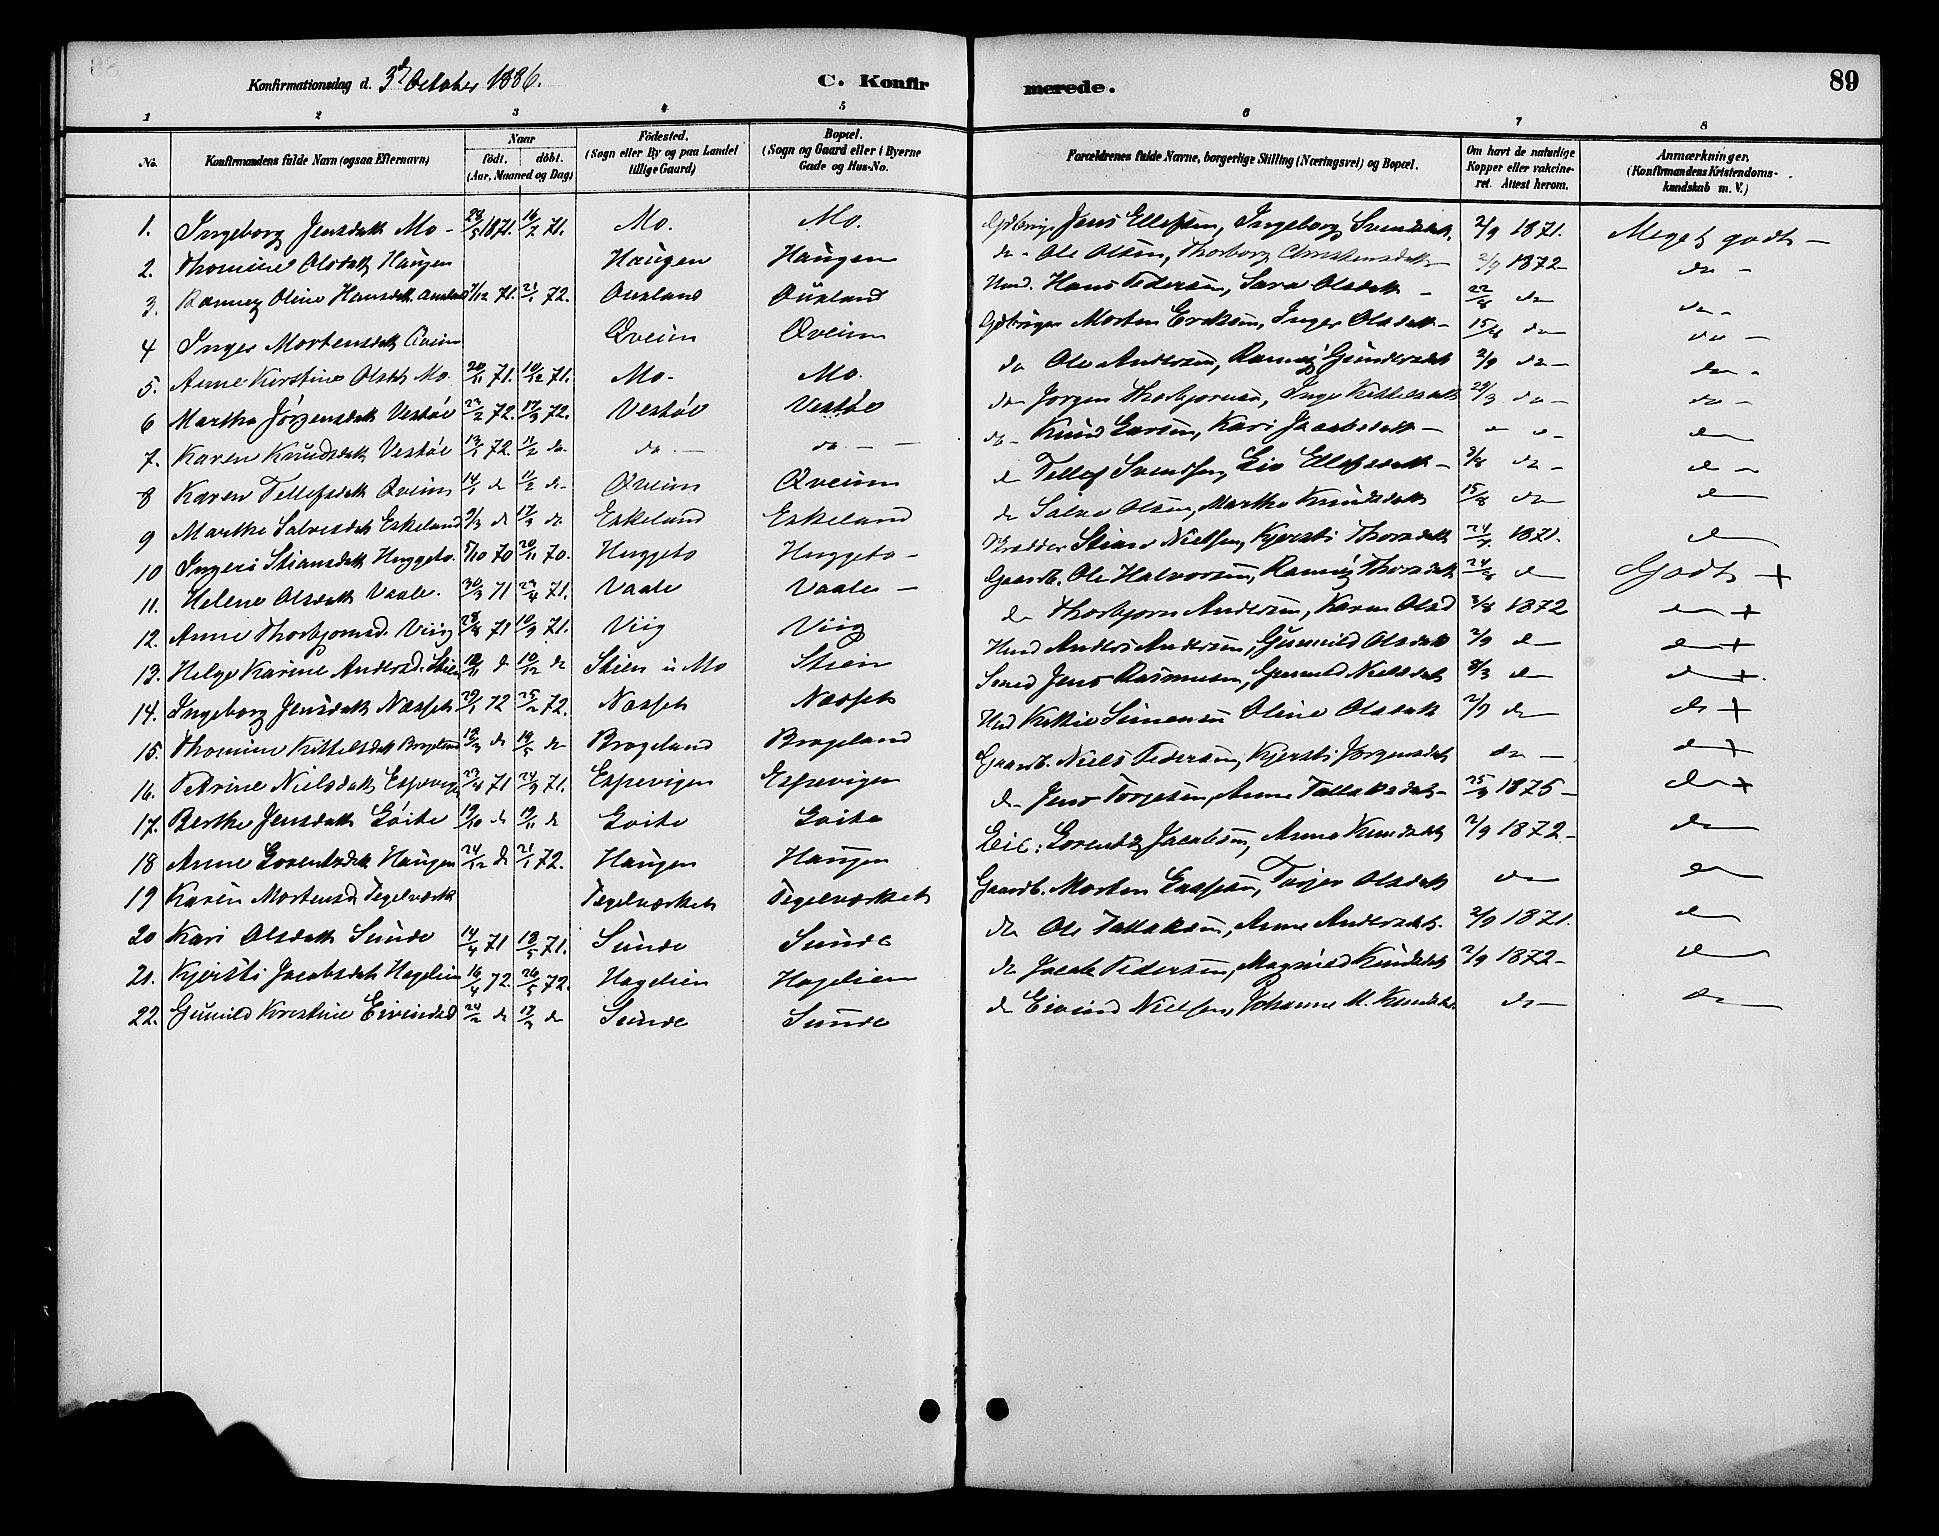 Konfirmationsdag d. 3d October 1886. C. Konfirmerede. 89
1 2 3 4 5 6 7 8
No. Konfirmandens fulde Navn (ogsaa Efternavn) Naar födt. döbt. (Aar, Maaned og Dag) Födested. (Sogn eller By og paa Landet tillige Gaard) Bopæl. (Sogn og Gaard eller i Byerne Gade og Hus-No. Forældrenes fulde Navne, borgerlige Stilling (Næringsvei) og Bopæl. Om havt de naturlige Kopper eller vakcineret. Attest herom. Anmærkninger. (Konfirmandens Kristendomskundskab m. V.)
1. Ingeborg Jensdatt Mo - 1871. 16/2 71. Mo. Mo. Jens Ellefsen, Ingeborg Svendsdatt. 2/9 1871. Meget godt -
2. Thomine Olsdatt Haugen Haugen Haugen do - Ole Olsen, Thorborg Christensdatt - 2/9 1872 - do -
3. Oline Hansdatt Ausland 7/12 71. 21/1 72. Ausland Ausland Hans Pedersen, Sara Olsdatt - 22/8 do do -
4 Inger Mortensdatt Qveim Qveim Qveim Morten Eriksen, Inger Olsdatt - 15/8 do - do -
5. Anne Kirstine Olsdt Mo. 20/11 71. 10/12 71. Mo - Mo. do Ole Andersen, Gundersdatt 2/9 do - do -
6 Martha Jörgensdatt Vestöl 72. 17/3 72. Vestöl Vestöl do Jörgen Thorbjörnsen, Inge Kittelsdatt 29/3 do - do -
7. Karen Knudsdatt Vestöl 72. 11/2 do. do. - do - - do - Knud Larsen, Kari Jacobsdatt - do
8 Karen Tellefsdatt Qveim 14/1 do 11/2 do - Qveim Qveim do Tellef Svendsen, Liv Ellefsdatt - 2/8 do - do -
9 Marthe Salvesdatt Eskeland do 17/3 do Eskeland Eskeland do Salve Olsen, Marthe Knudsdatt 15/8 do do
10 Stiansdatt Heggeto. 70 20/11 70. Heggeto Heggeto - Stian Nielsen, Kjersti Thorsdatt 1871. do
11. Helene Olsdatt Vaale. 30/3 71 71. Vaale Vaale - Gaardb. Ole Halvorsen, Thorsdatt 24/8 do Godt +
12. Anne Thorbjörnsd. Viig 71 10/9 71. Viig Viig do Thorbjörn Andersen, Karen Olsd 2/8 1872 do +
13. Helge Karine Andersd. Stien do 10/12 do Stien u Mo Stien Anders Andersen, Gunnild Olsdatt 2/9 do do +
14. Ingeborg Jensdatt Næsset 29/1 72 25/2 72. Næsset Næsset Smed Jens Rasmusen, Gunnild Nielsdatt 8/3 do do +.
15. Thomine Kittelsdatt Brogeland do do Brogeland Brogeland Simensen Oline Olsdatt 2/9 do do +
16. Petrine Nielsdatt Espevigen 71 71. Espevigen Espevigen Gaardb. Niels Pedersen, Kjersti Jörgensdatt do - do +
17. Berthe Jensdatt Löite 19/10 do 19/11 do Löite Löite do - Jens Torjesen, Anne Tallaksdatt - 25/9 1875 - do +
18 Anne Lorentsdatt Haugen 24/12 do 21/1 72. Haugen Haugen Lorentz Jacobsen, Anne Knudsdatt 2/9 1872 - do
19 Karen Mortensd Tegelværket Tegelværket Tegelværket Gaardb. Morten Olsdatt do do
20 Kari Olsdatt Sunde 14/4 71 18/5 71. Sunde Sunde do Ole Tallaksen, Anne Andersdatt. 2/9 1871. do
21. Kjersti Jacobsdatt Hagelien 16/4 72. 26/5 72. Hagelien Hagelien do Jacob Pedersen, Magnild Knudsdatt 2/9 1872 - do
22. Gunild Kirstine Eivindsd 24/2 do 17/3 do Sunde Sunde do Eivind Nielsen, Johanne M. Knudsdatt. do - do